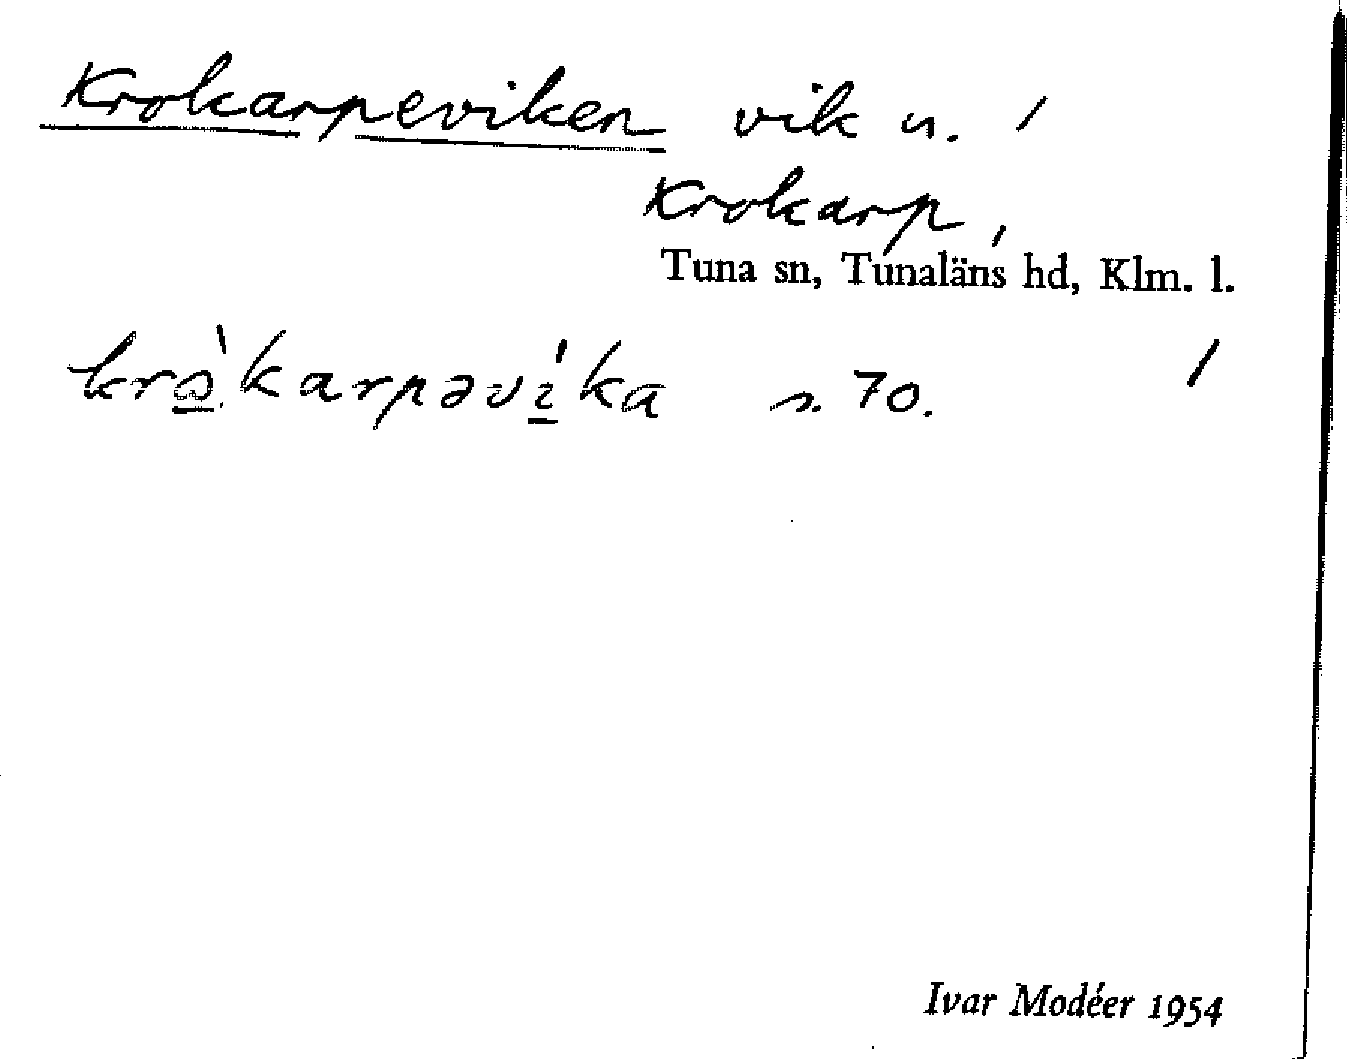 Krokarpeviken vik u. /
Krokarp,
Tuna sn, Tunaläns hd, Klm. l.
krὼ̲karpəví̲ka s. 70. /
Ivar Modéer 1954